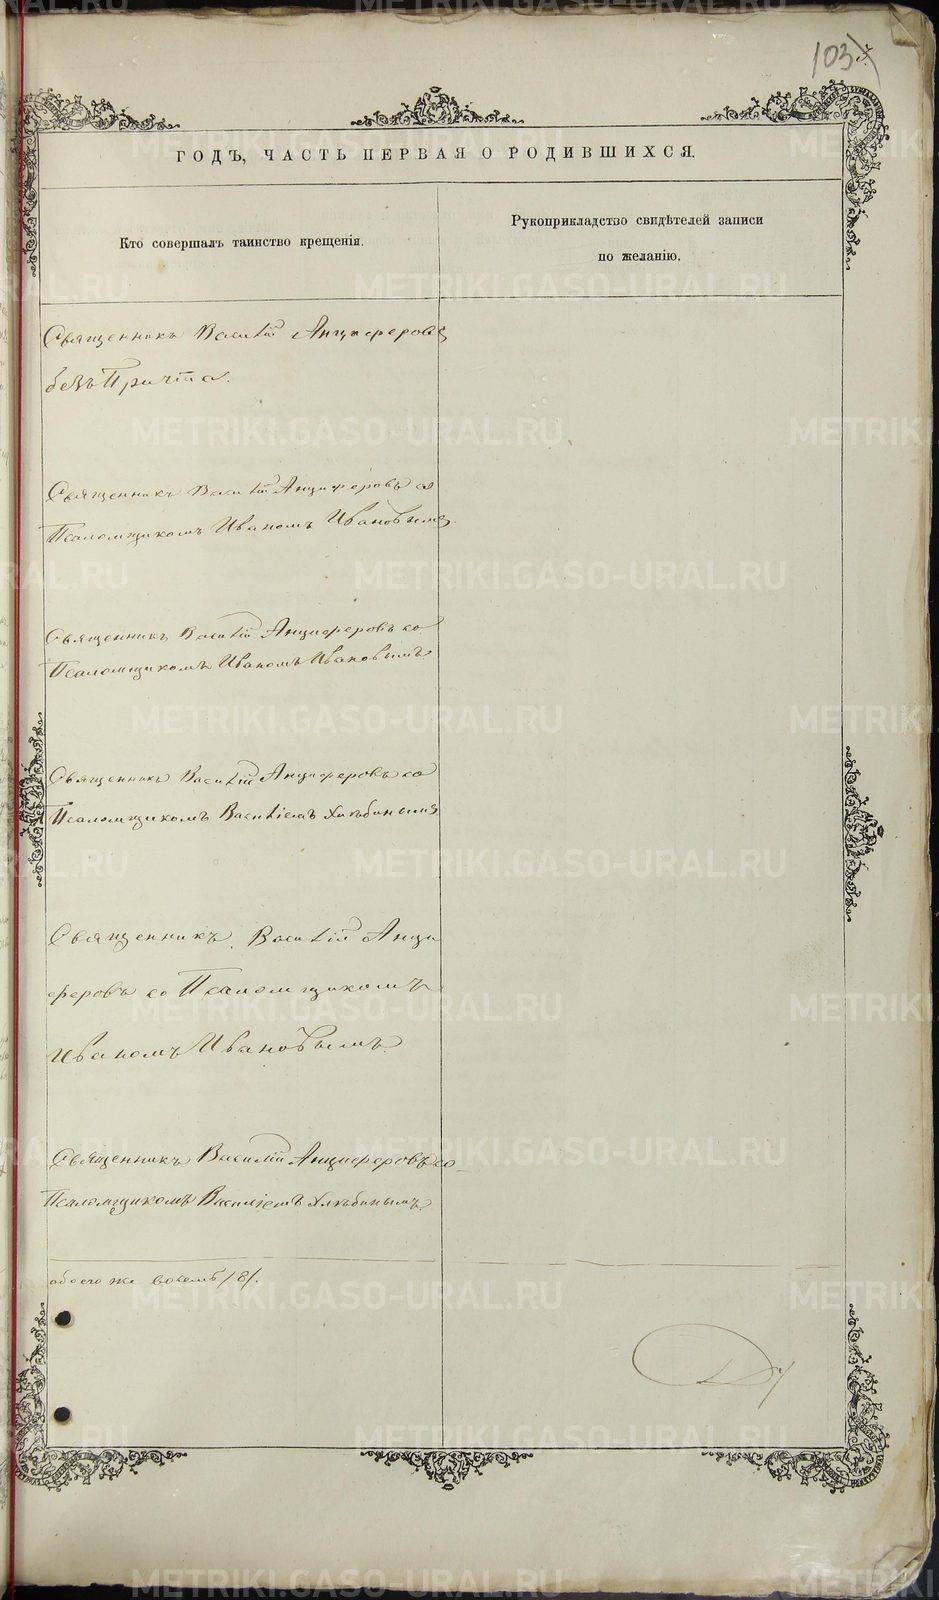 103
ГОДЪ, ЧАСТЬ ПЕРВАЯ О РОДИВШИХСЯ.
Кто совершалъ таинство крещенія.
Рукоприкладство свидѣтелей записи
по желанію.
Священникъ Василій Анциферовъ
безъ Причта.
Священникъ Василій Анциферовъ со
Псаломщикомъ Иваномъ Ивановымъ.
Священникъ Василій Анциферовъ со
Псаломщикомъ Иваномъ Ивановымъ
Священникъ Василій Анциферовъ со
Псаломщикомъ Василіемъ Хлѣбинымъ
Священникъ Василій Анци
феровъ со Псаломщикомъ
Иваномъ Ивановымъ
Священникъ Василій Анциферовъ со
Псаломщикомъ Василіемъ Хлѣбинымъ
обоего же восемь /8/.
METRIKI.GASO-URAL.RU